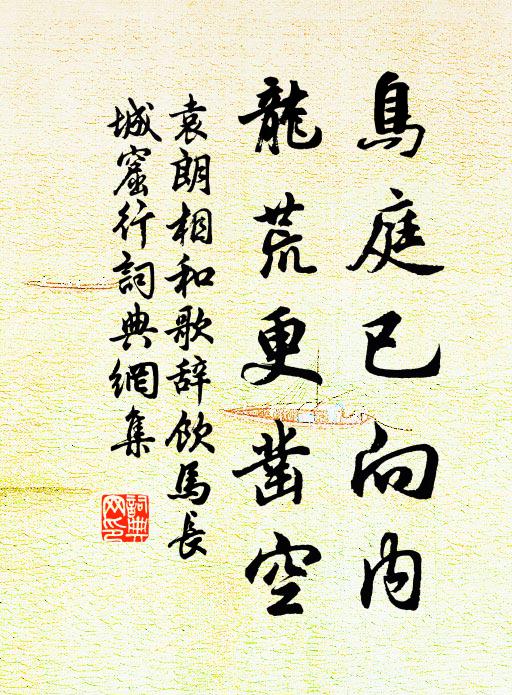 鳥庭已向内
龍荒更鑿空
袁朗相和歌辞飲馬長
城窟行詞典網集
詞典
网印